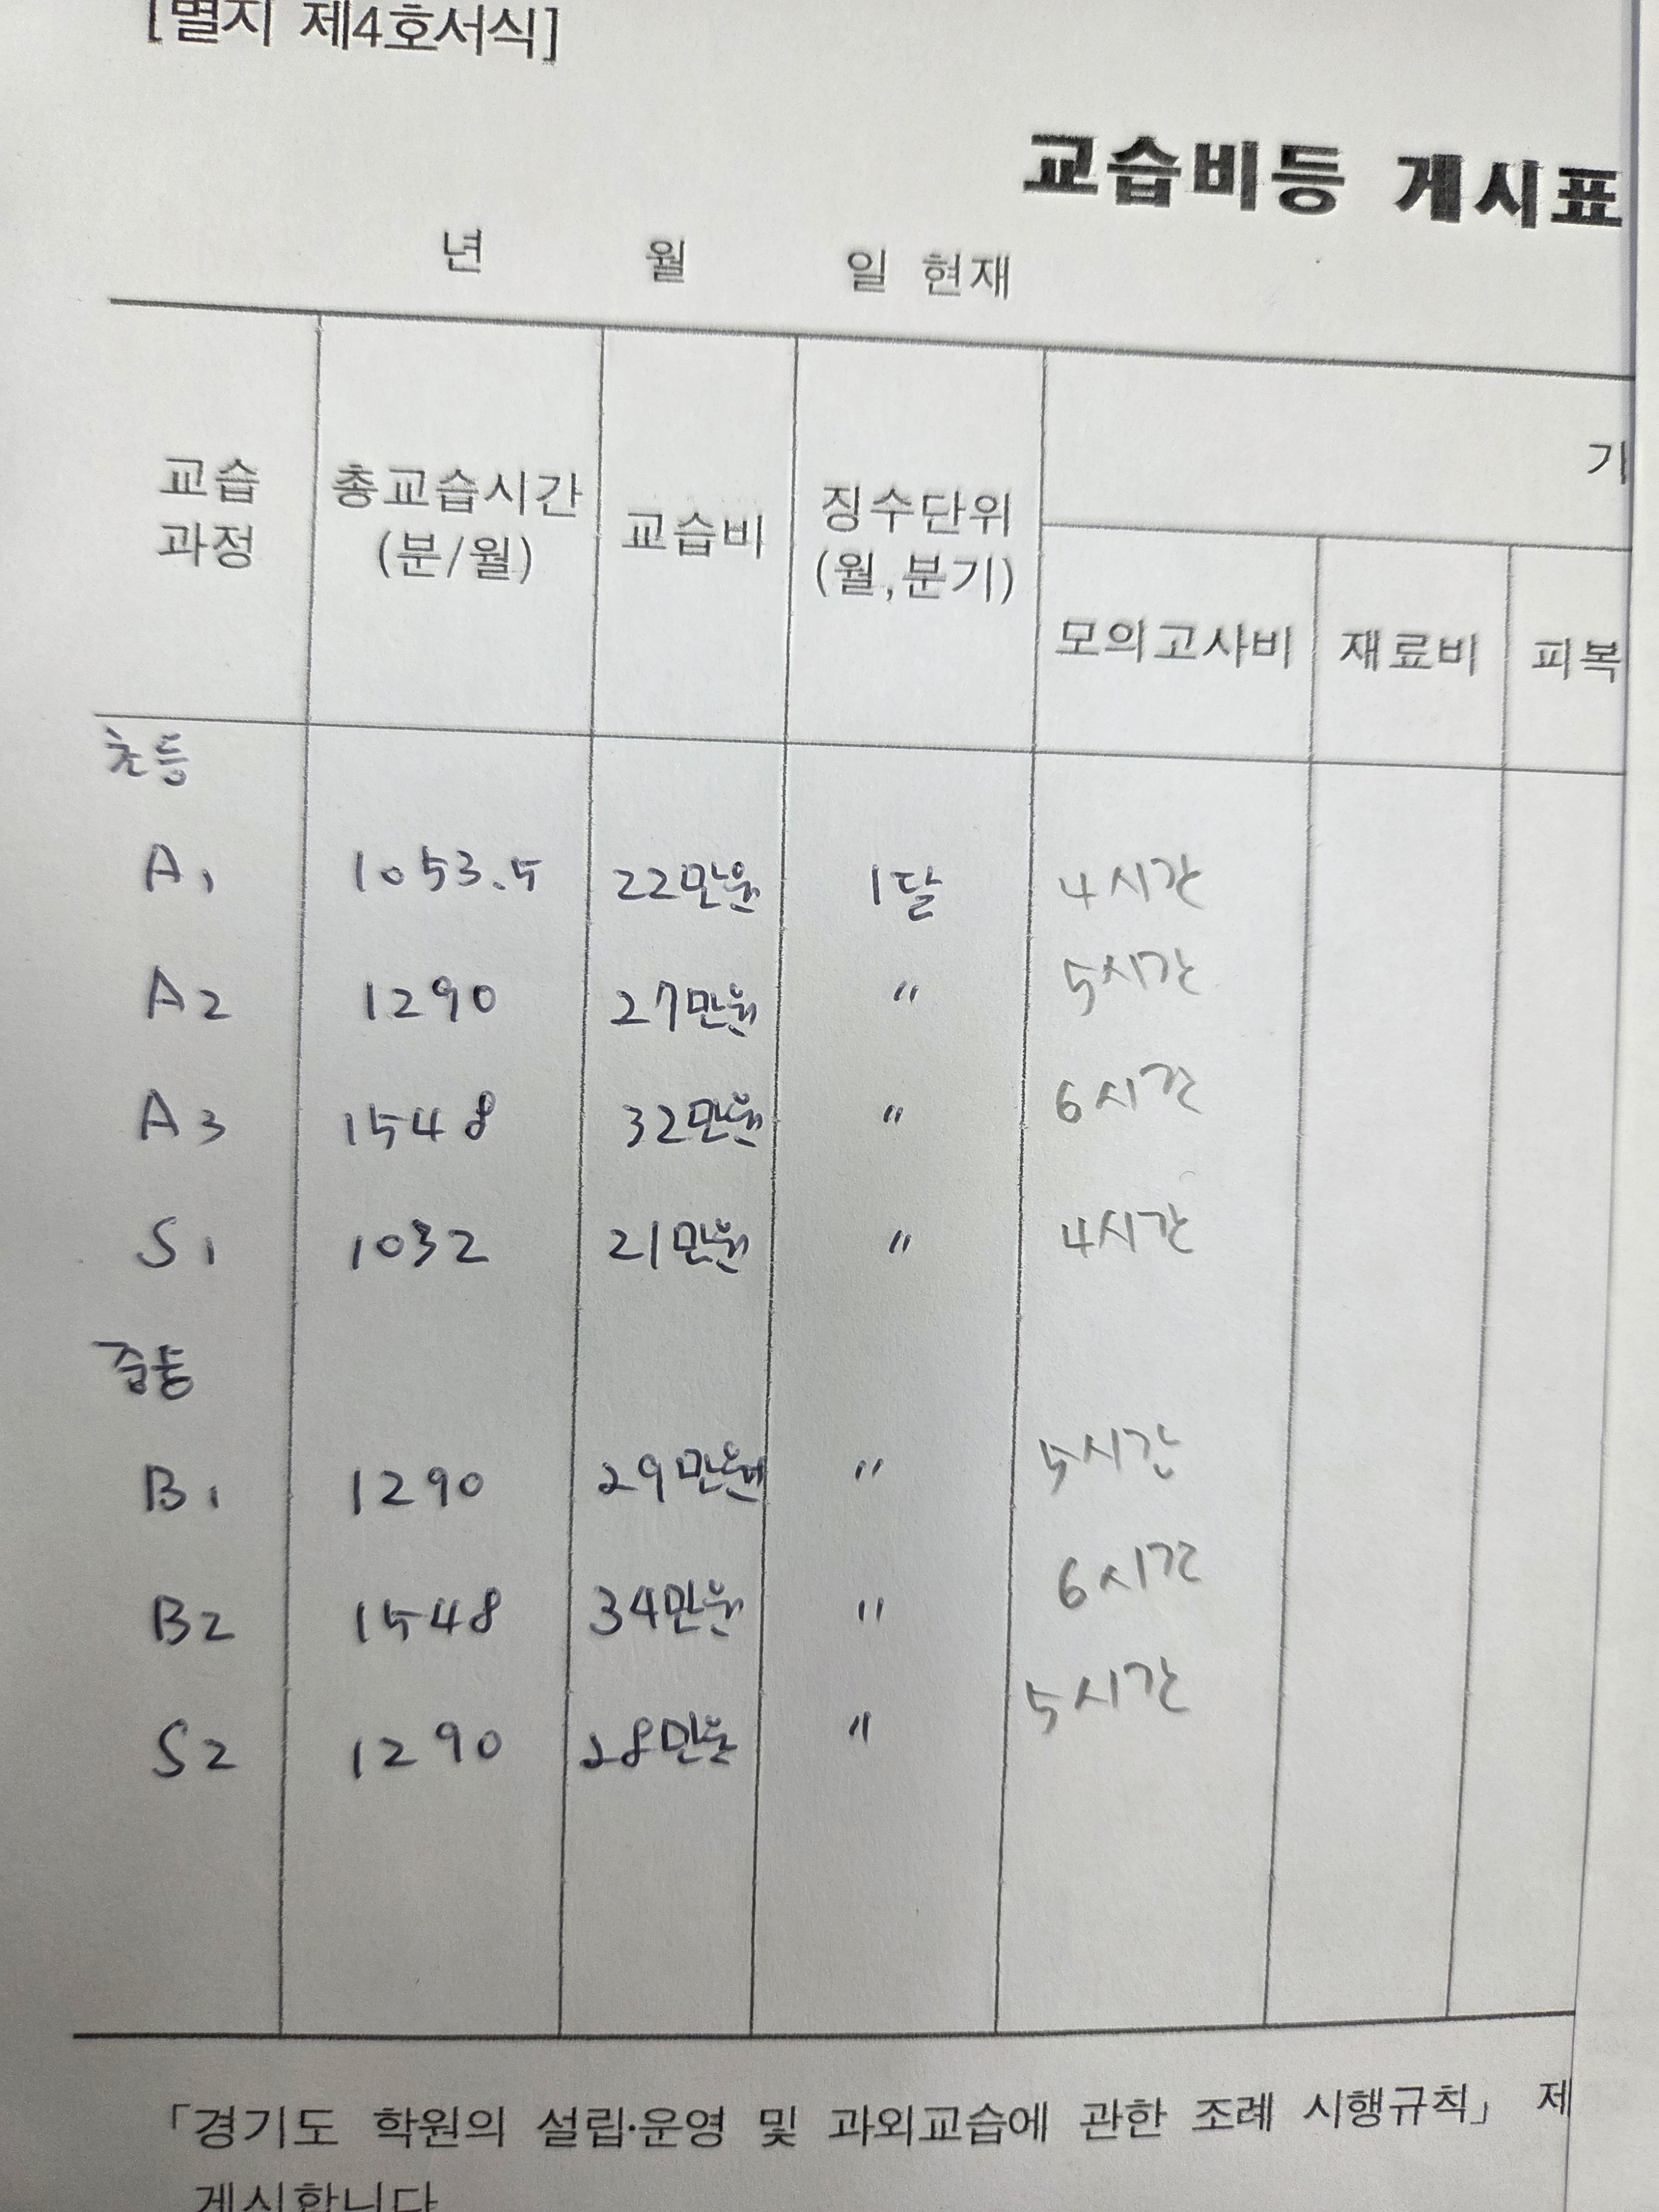 [별지 제4호서식]
교습비등 게시표
년 월 일 현재
교습 과정 총교습시간 (분/월) 교습비 징수단위 (월,분기) 기
모의고사비 재료비 피복
초등
A1 1053.5 22만원 1달 4시간
A2 1290 27만원 〃 5시간
A3 1548 32만원 〃 6시간
S1 1032 21만원 〃 4시간
중등
B1 1290 29만원 〃 5시간
B2 1548 34만원 〃 6시간
S2 1290 28만원 〃 5시간
「경기도 학원의 설립·운영 및 과외교습에 관한 조례 시행규칙」 제
게시합니다